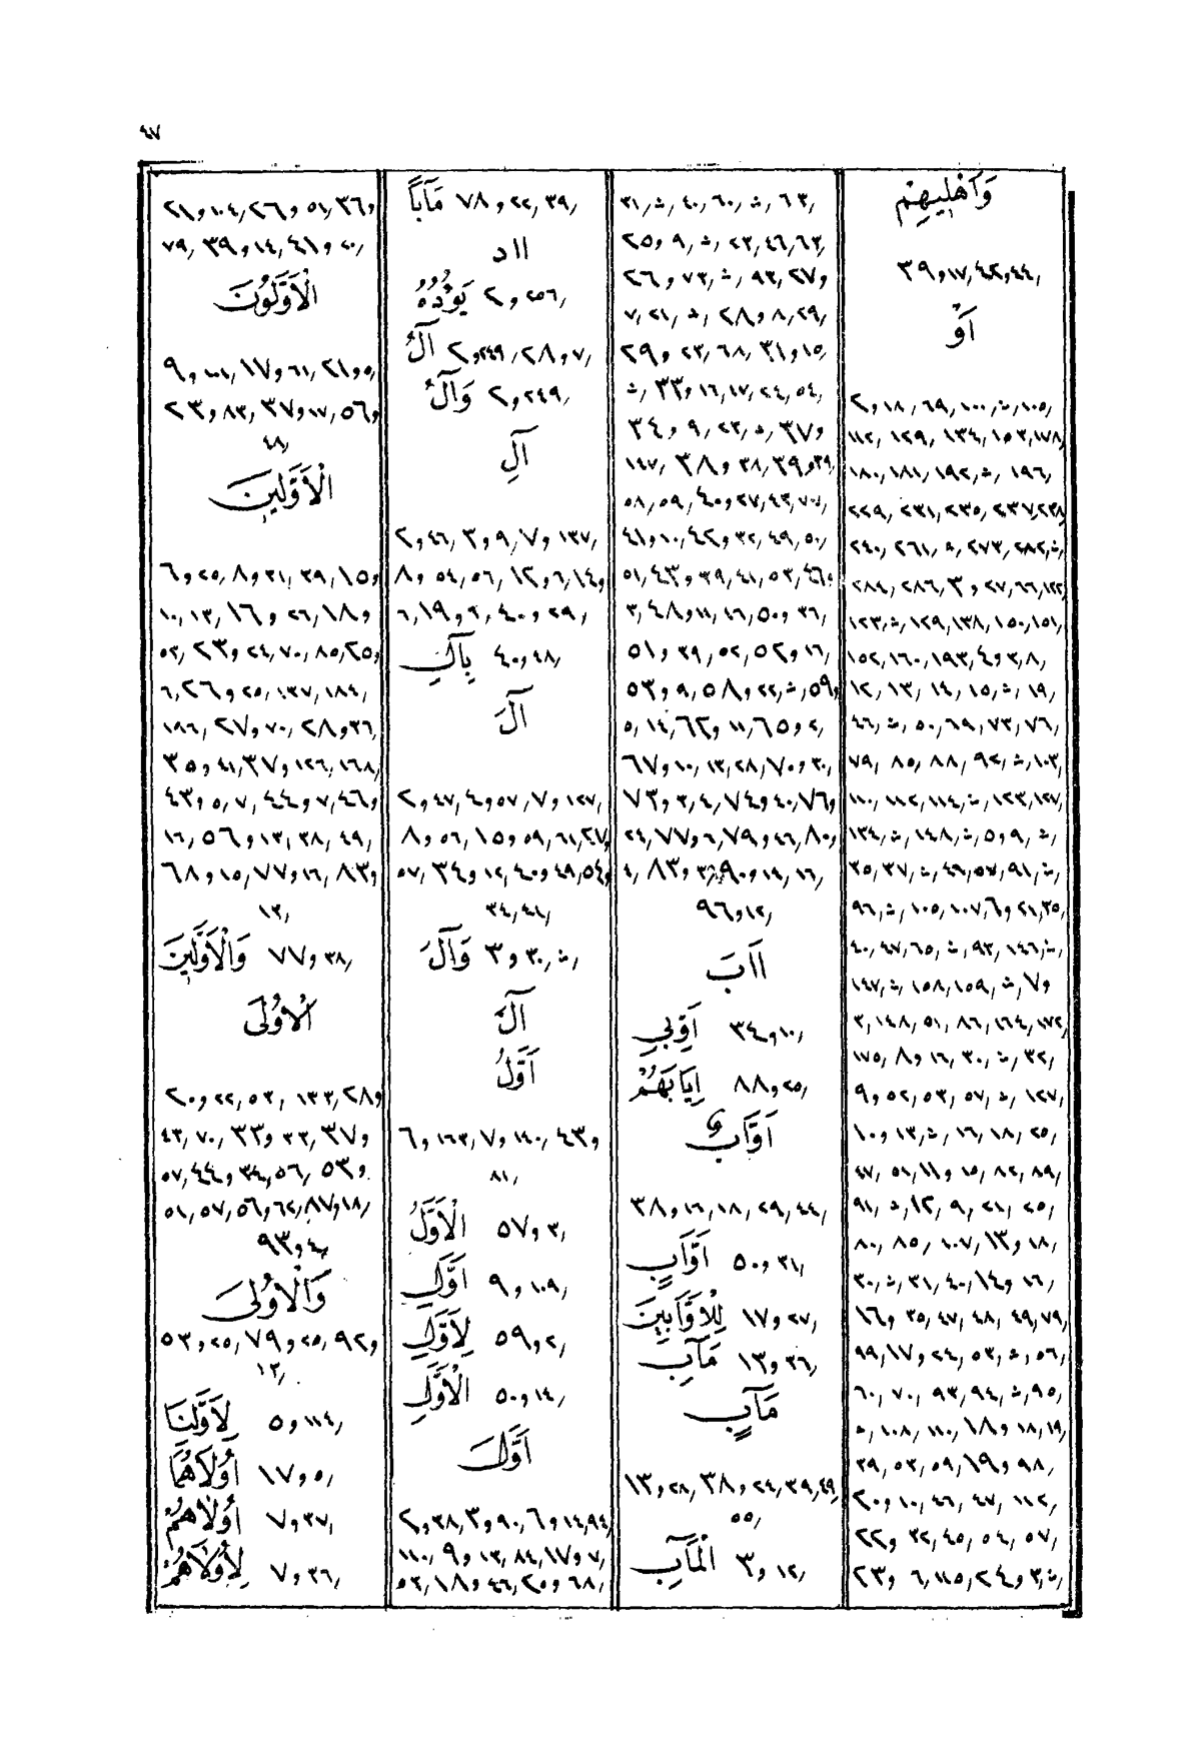 ٤٧
وَأَهْلِيهِمْ
٣٩و١٧,٤٢,٤٤,
أَوْ
٢و١٨,٦٩,١٠٠,ث,١٠٥,
١١٢,١٢٩,١٣٤,١٥٣,١٧٨,
١٨٠,١٨١,١٩٢,ث,١٩٦,
٢٢٩,٢٣١,٢٣٥,٢٣٧,٢٣٨,
٢٤٠,٢٦١,ث,٢٧٣,٢٨٢,ث,
٢٨٤,٢٨٦,٣و٢٧,٦٦,١٢٢,
١٢٣,ث,١٢٩,١٣٨,١٥٠,١٥١,
١٥٢,١٦٠,١٩٣,٤و٣,٨,
١٢,١٣,١٤,١٥,ث,١٩,
٤٦,ث,٥٠,٦٩,٧٣,٧٦,
٧٩,٨٥,٨٨,٩٢,ث,١٠٣,
١١٠,١١٢,١١٤,ث,١٢٣,١٢٧,
١٣٤,ث,١٤٨,ث,٥و٩,ث,
٣٥,٣٧,ث,٤٦,٥٧,٩١,ث,
٩٦,ث,١٠٥,١٠٧,٦و٢١,٣٥,
٤٠,٤٧,٦٥,ث,٩٣,١٤٦,ث,
١٤٧,ث,١٥٨,١٥٩,ث,٧و
٣,١٤٨,٥١,٨٦,١٦٤,١٧٢,
١٧٥,٨و١٦,٣٠,ث,٣٢,
٩و٥٢,٥٣,٥٧,ث,١٢٧,
١٠و١٣,ث,١٦,١٨,٢٥,
٤٧,٥١,١١و١٥,٨٢,٨٩,
٩١,ث,١٢و٩,٢١,٢٥,
٨٠,٨٥,١٠٧,١٣و١٨,
٣٠,ث,٣١,٤٠,١٤و١٦,
١٦و٣٥,٤٧,٤٨,٤٩,٧٩,
٩٩,١٧و٢٤,٥٣,ث,٥٦,
٦٠,٧٠,٩٣,٩٤,ث,٩٥,
ث,١٠٨,١١٠,١٨و١٨,١٩,
٣٩,٥٣,٥٩,١٩و٩٨,
٢٠و١٠,٤٦,٤٧,١١٢,
٢٢و٣٢,٤٥,٥٤,٥٧,
٢٣و ٦,١١٥,٢٤و٣,ث,
٣١,ث,٤٠,٦٠,ث,٦٣,
٢٥و٩,ث,٢٣,٤٦,٦٢,
٢٦و٧٣,ث,٩٣,٢٧و
٧,٢١,ث,٢٨و٨,٢٩,
٢٩و٢٣,٦٨,٣١و١٥,
ث,٣٣و١٦,١٧,٢٤,٥٤,
٣٤و٩,٢٣,ث,٣٧و
١٤٧,٣٨و٣٨,٣٩و٢٩,
٥٨,٥٩,٤٠و٢٧,٤٣,٧٠,
٤١و١٠,٤٢و٣٢,٤٩,٥٠,
٥١,٤٣و٣٩,٤١,٥٣,٤٦و
٣,٤٨و١١,١٦,٥٠و٣٦,
٥١و٣٩,٥٢,٥٢و١٦,
٥٣و٩,٥٨و٢٢,ث,٥٩و
٥,١٤,٦٢و١١,٦٥و٢,
٦٧و١٠,١٣,٢٨,٧٠و٣٠,
٧٣و٣,٤,٧٤و٤٠,٧٦و
٢٤,٧٧و٦,٧٩و٤٦,٨٠و
٤,٨٣و٣,٩٠و١٤,١٦,
٩٦و١٢,
ااَبَ
أَوِّبِي ٣٤و١٠,
إِيَابَهُمْ ٨٨و٢٥,
أَوَّابٌ
٣٨و١٦,١٨,٢٩,٤٤,
أَوَّابٍ ٥٠و٣١,
لِلْأَوَّابِينَ ١٧و٢٧,
مَآبِ ١٣و٣٦,
مَآبٍ
١٣و٢٨,٣٨و٢٤,٣٩,٤٩,
٥٥,
الْمَآبِ ٣و١٢,
مَآبًا ٧٨و٢٢,٣٩,
ااد
يَؤُدُهُ ٢و٢٥٦,
آلُ ٢و٢٤٩,٢٨و٧,
وَآلُ ٢و٢٤٩,
آلِ
٢و٤٦,٣و٩,٧و١٣٧,
٨و٥٤,٥٦,١٢و٦,١٤و
٦,١٩و٣,٤٠و٢٩,
بِآلِ ٤٠و٤٨,
آلَ
٢و٤٧,٤و٥٧,٧و١٢٧,
٨و٥٦,١٥و٥٩,٦١,٢٧و
٥٧,٣٤و١٢,٤٠و٤٩,٥٤و
٣٤,٤١,
وَآلَ ٣و٣٠,ث,
آلَ
أَوَّلُ
٦و١٦٣,٧و١٤٠,٤٣و
٨١,
الْأَوَّلُ ٥٧و٣,
أَوَّلِ ٩و١٠٩,
لِأَوَّلِ ٥٩و٢,
الْأَوَّلِ ٥٠و١٤,
أَوَّلَ
٢و٣٨,٣و٩٠,٦و١٤,٩٤,
١١٠,٩و١٣,٨٤,١٧و٧,
٥٢,١٨و٤٦,٢٠و٦٨,
٢١و١٠٤,٢٦و٥١,٣٦و
٧٩,٣٩و١٤,٤١و٢٠,
الْأَوَّلُونَ
٩و١٠١,١٧و٦١,٢١و٥,
٢٣و٨٣,٣٧و١٧,٥٦و
٤٨,
الْأَوَّلِينَ
٦و٢٥,٨و٣١,٣٩,١٥و
١٠,١٣,١٦و٢٦,١٨و
٥٢,٢٣و٢٤,٧٠,٨٥,٢٥و
٦,٢٦و٢٥,١٣٧,١٨٤,
١٩٦,٢٧و٧٠,٢٨و٣٦,
٣٥و٤١,٣٧و١٢٦,١٦٨,
٤٣و٥,٧,٤٤و٧,٤٦و
١٦,٥٦و١٣,٣٨,٤٩,
٦٨و١٥,٧٧و١٦,٨٣و
١٣,
وَالْأَوَّلِينَ ٧٧و٣٨,
الْأُولَى
٢٠و٢٢,٥٣,١٣٣,٢٨و
٤٣,٧٠,٣٣و٣٣,٣٧و
٥٧,٤٤و٣٤,٥٦,٥٣و
٥١,٥٧,٥٦و٦٢,٨٧و١٨,
٩٣و٤,
وَالْأُولَى
٥٣و٢٥,٧٩و٢٥,٩٢و
١٣,
لِأَوَّلِنَا ٥و١١٤,
أُولَاهُمَا ١٧و٥,
أُولَاهُمْ ٧و٣٧,
لِأُولَاهُمْ ٧و٣٦,